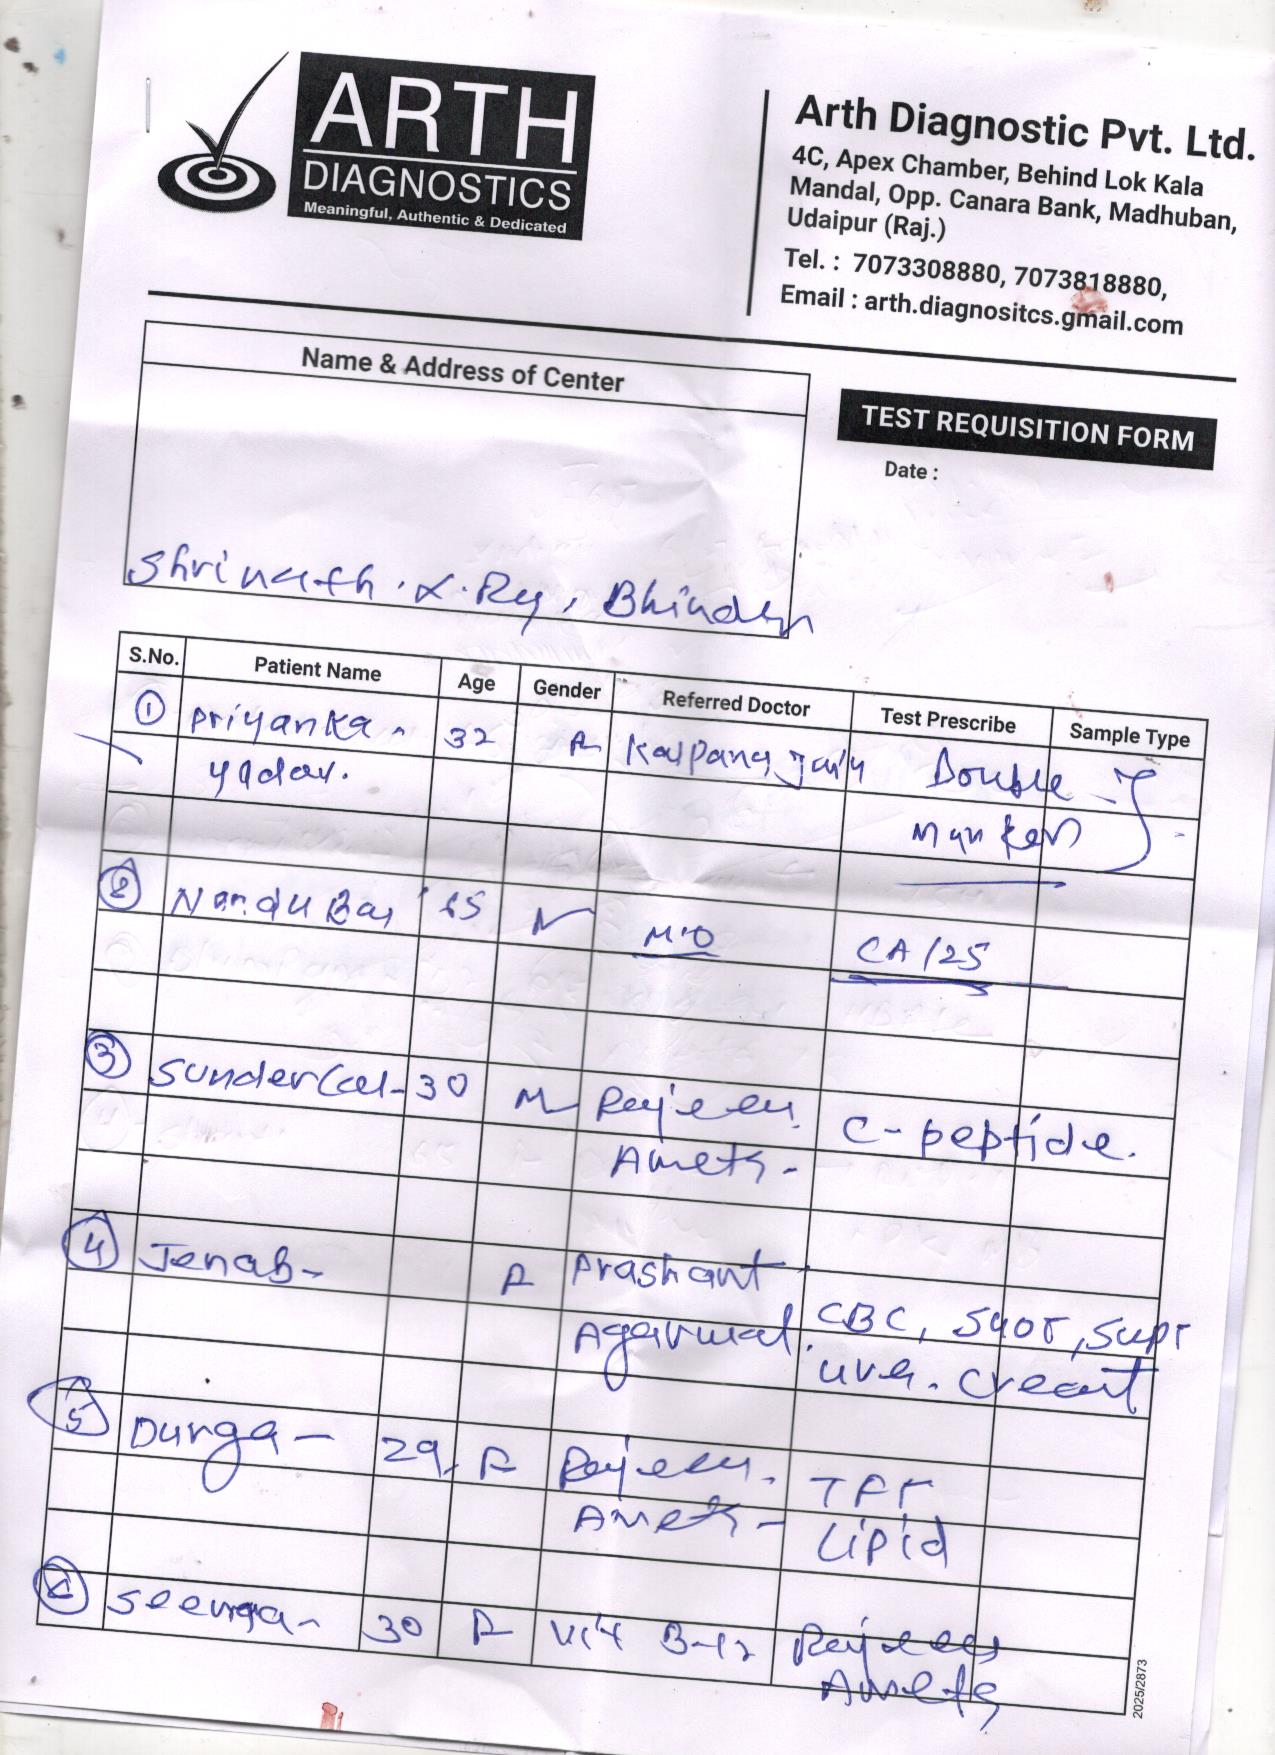 ARTH
DIAGNOSTICS
Meaningful, Authentic & Dedicated
Arth Diagnostic Pvt. Ltd.
4C, Apex Chamber, Behind Lok Kala
Mandal, Opp. Canara Bank, Madhuban,
Udaipur (Raj.)
Tel. : 7073308880, 7073818880,
Email : arth.diagnositcs.gmail.com
Name & Address of Center
TEST REQUISITION FORM
Date :
Shrinath. X. Ray, Bhinder
S.No. Patient Name Age Gender Referred Doctor Test Prescribe Sample Type
1 Priyanka - 32 F Kalpana Double
yadav. Marker
2 Nandu Bai 65 M.O CA125
3 Sunder Lal - 30 M Rajeev C-peptide.
Ameta -
4 Jenab - F Prashant
Agarwal. CBC, SGOT, SGPT
urea. Creat
5 Durga - 29, F Rajeev. TFT
Ameta - Lipid
30 F Vit B-12 Rajeev
Ameta
2025/2873